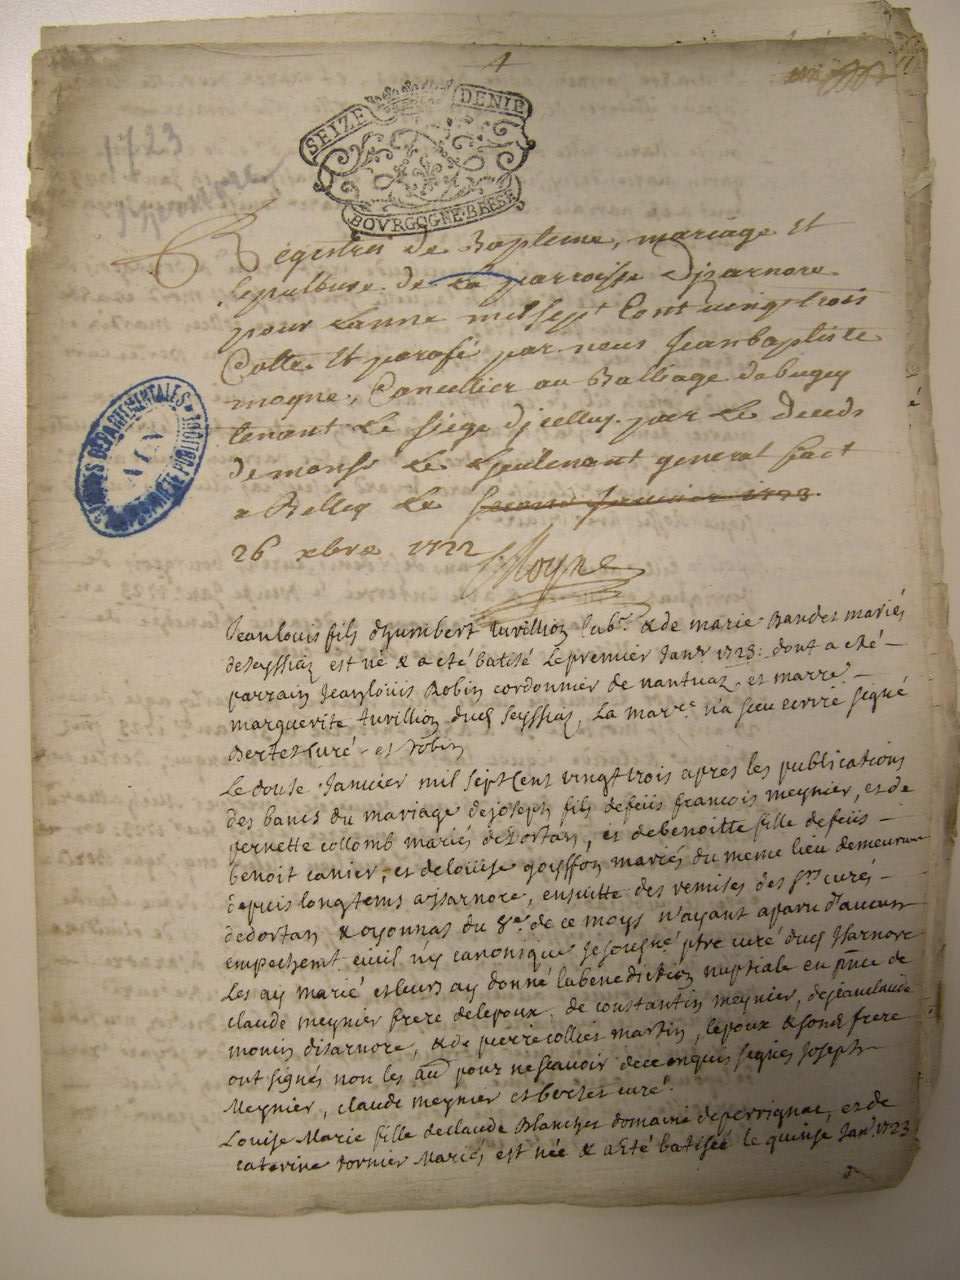 1
SEIZE DENIE
BOURGOGNE·BRESSE
1723
ARCHIVES DEPARTEMENTALES
AIN
PROPRIETE PUBLIQUE
Regestres de Bapteme, mariage et
sepulture de La parroisse Disarnore
pour Lanne mil sept Cent vingt trois
Cotte Et parafé par nous Jean baptiste
moyne, Concellier au Balliage de bugey
tenant Le siege dicelluy par Le deceds
de monsr Le Lieutenant general fact
a Belley Le second Janvier 1723
26 xbre 1722 Moyne
Jean louis fils d'humbert Tuvillion labr. & de marie Bandes mariés
de seyssiaz est né & a eté batisé Le premier Janr 1723: dont a eté
parrain Jean louis Robin cordonnier de nantuaz et marre
marguerite tuvillion dud seyssiaz, La marre n'a sceu ecrire signé
Bertet curé et robin
Le douse Janvier mil sept Cent vingt trois apres les publications
des bancs du mariage de joseph fils de feüs françois meynier, et de
pernette collomb mariés de Dortan, et de benoitte fille de feüs
benoit canier, et de loüise goiffon mariés du meme lieu demeurant
depuis longtems a Isarnore, ensuitte des remises des srs curés
de dortan & oyonnas du 8e de ce moys n'ayant aparu d'aucun
empechemt civil n'y canonique Je sousigné ptre curé dud Isarnore
Les ay marié et leurs ay donné la benediction nuptiale en pnce de
claude meynier frere de lepoux, de constantin meynier, de jean claude
monin disarnore, & de pierre collies martin, lepoux & sond frere
ont signés non les au pour ne scavoir de ce enquis signés Joseph
Meynier, claude meynier et bertet curé.
Louise Marie fille de claude Blanchet domaine de perrignac, et de
caterine dornier Mariés est née & a eté batisée le quinse Janr 1723